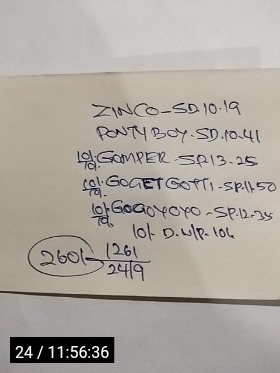 ZINCO-SD.10-19
PONTY BOY-SD.10.41
10/- GOMPER-SP.13-25
10/- GOGETGOTTI-SP.11-50
10/- GOGOYOYO-SP.12-35
10/- D.N/R-106
260/- 1261
24/9
24 / 11:56:36